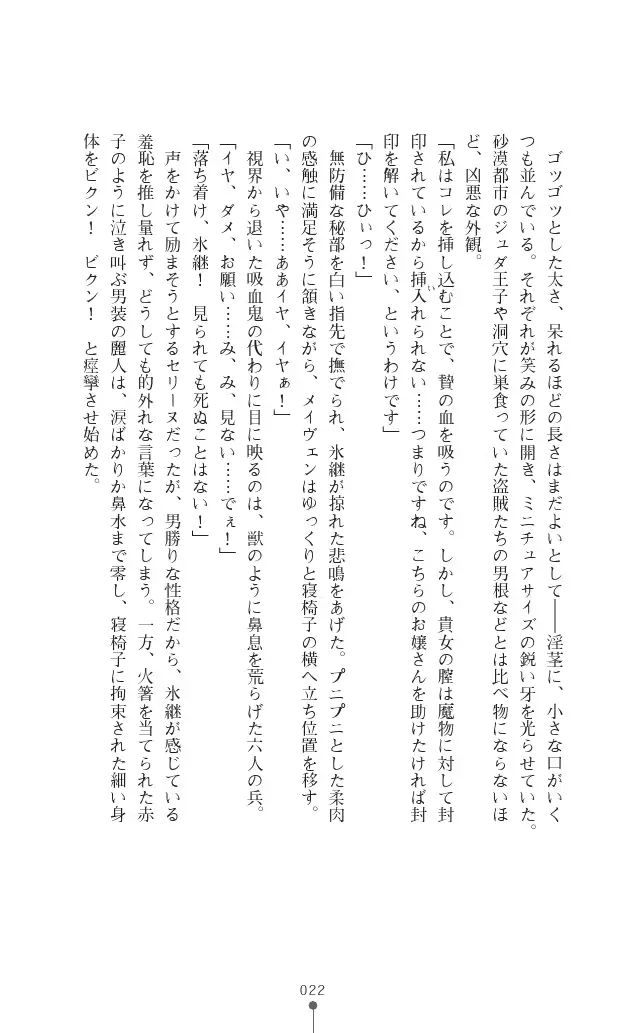 ゴツゴツとした太さ、呆れるほどの長さはまだよいとして――淫茎に、小さな口がいく
つも並んでいる。それぞれが笑みの形に開き、ミニチュアサイズの鋭い牙を光らせていた。
砂漠都市のジュダ王子や洞穴に巣食っていた盗賊たちの男根などとは比べ物にならないほ
ど、凶悪な外観。
「私はコレを挿し込むことで、贄の血を吸うのです。しかし、貴女の膣は魔物に対して封
印されているから挿入れられない……つまりですね、こちらのお嬢さんを助けたければ封
印を解いてください、というわけです」
「ひ……ひぃっ！」
無防備な秘部を白い指先で撫でられ、氷継が掠れた悲鳴をあげた。プニプニとした柔肉
の感触に満足そうに頷きながら、メイヴェンはゆっくりと寝椅子の横へ立ち位置を移す。
「い、いや……ああイヤ、イヤぁ！」
視界から退いた吸血鬼の代わりに目に映るのは、獣のように鼻息を荒らげた六人の兵。
「イヤ、ダメ、お願い……み、み、見ない……でぇ！」
「落ち着け、氷継！　見られても死ぬことはない！」
声をかけて励まそうとするセリーヌだったが、男勝りな性格だから、氷継が感じている
羞恥を推し量れず、どうしても的外れな言葉になってしまう。一方、火箸を当てられた赤
子のように泣き叫ぶ男装の麗人は、涙ばかりか鼻水まで零し、寝椅子に拘束された細い身
体をビクン！　ビクン！　と痙攣させ始めた。
022